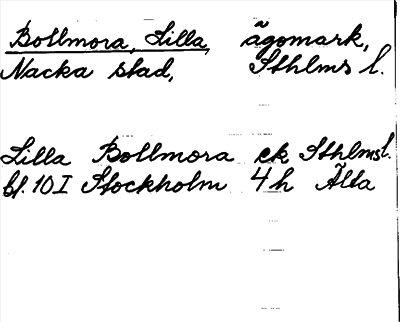 Bollmora, Lilla, ägomark,
Nacka stad, Sthlms l.
Lilla Bollmora ek Sthlmsl.
bl. 10I Stockholm 4h Älta